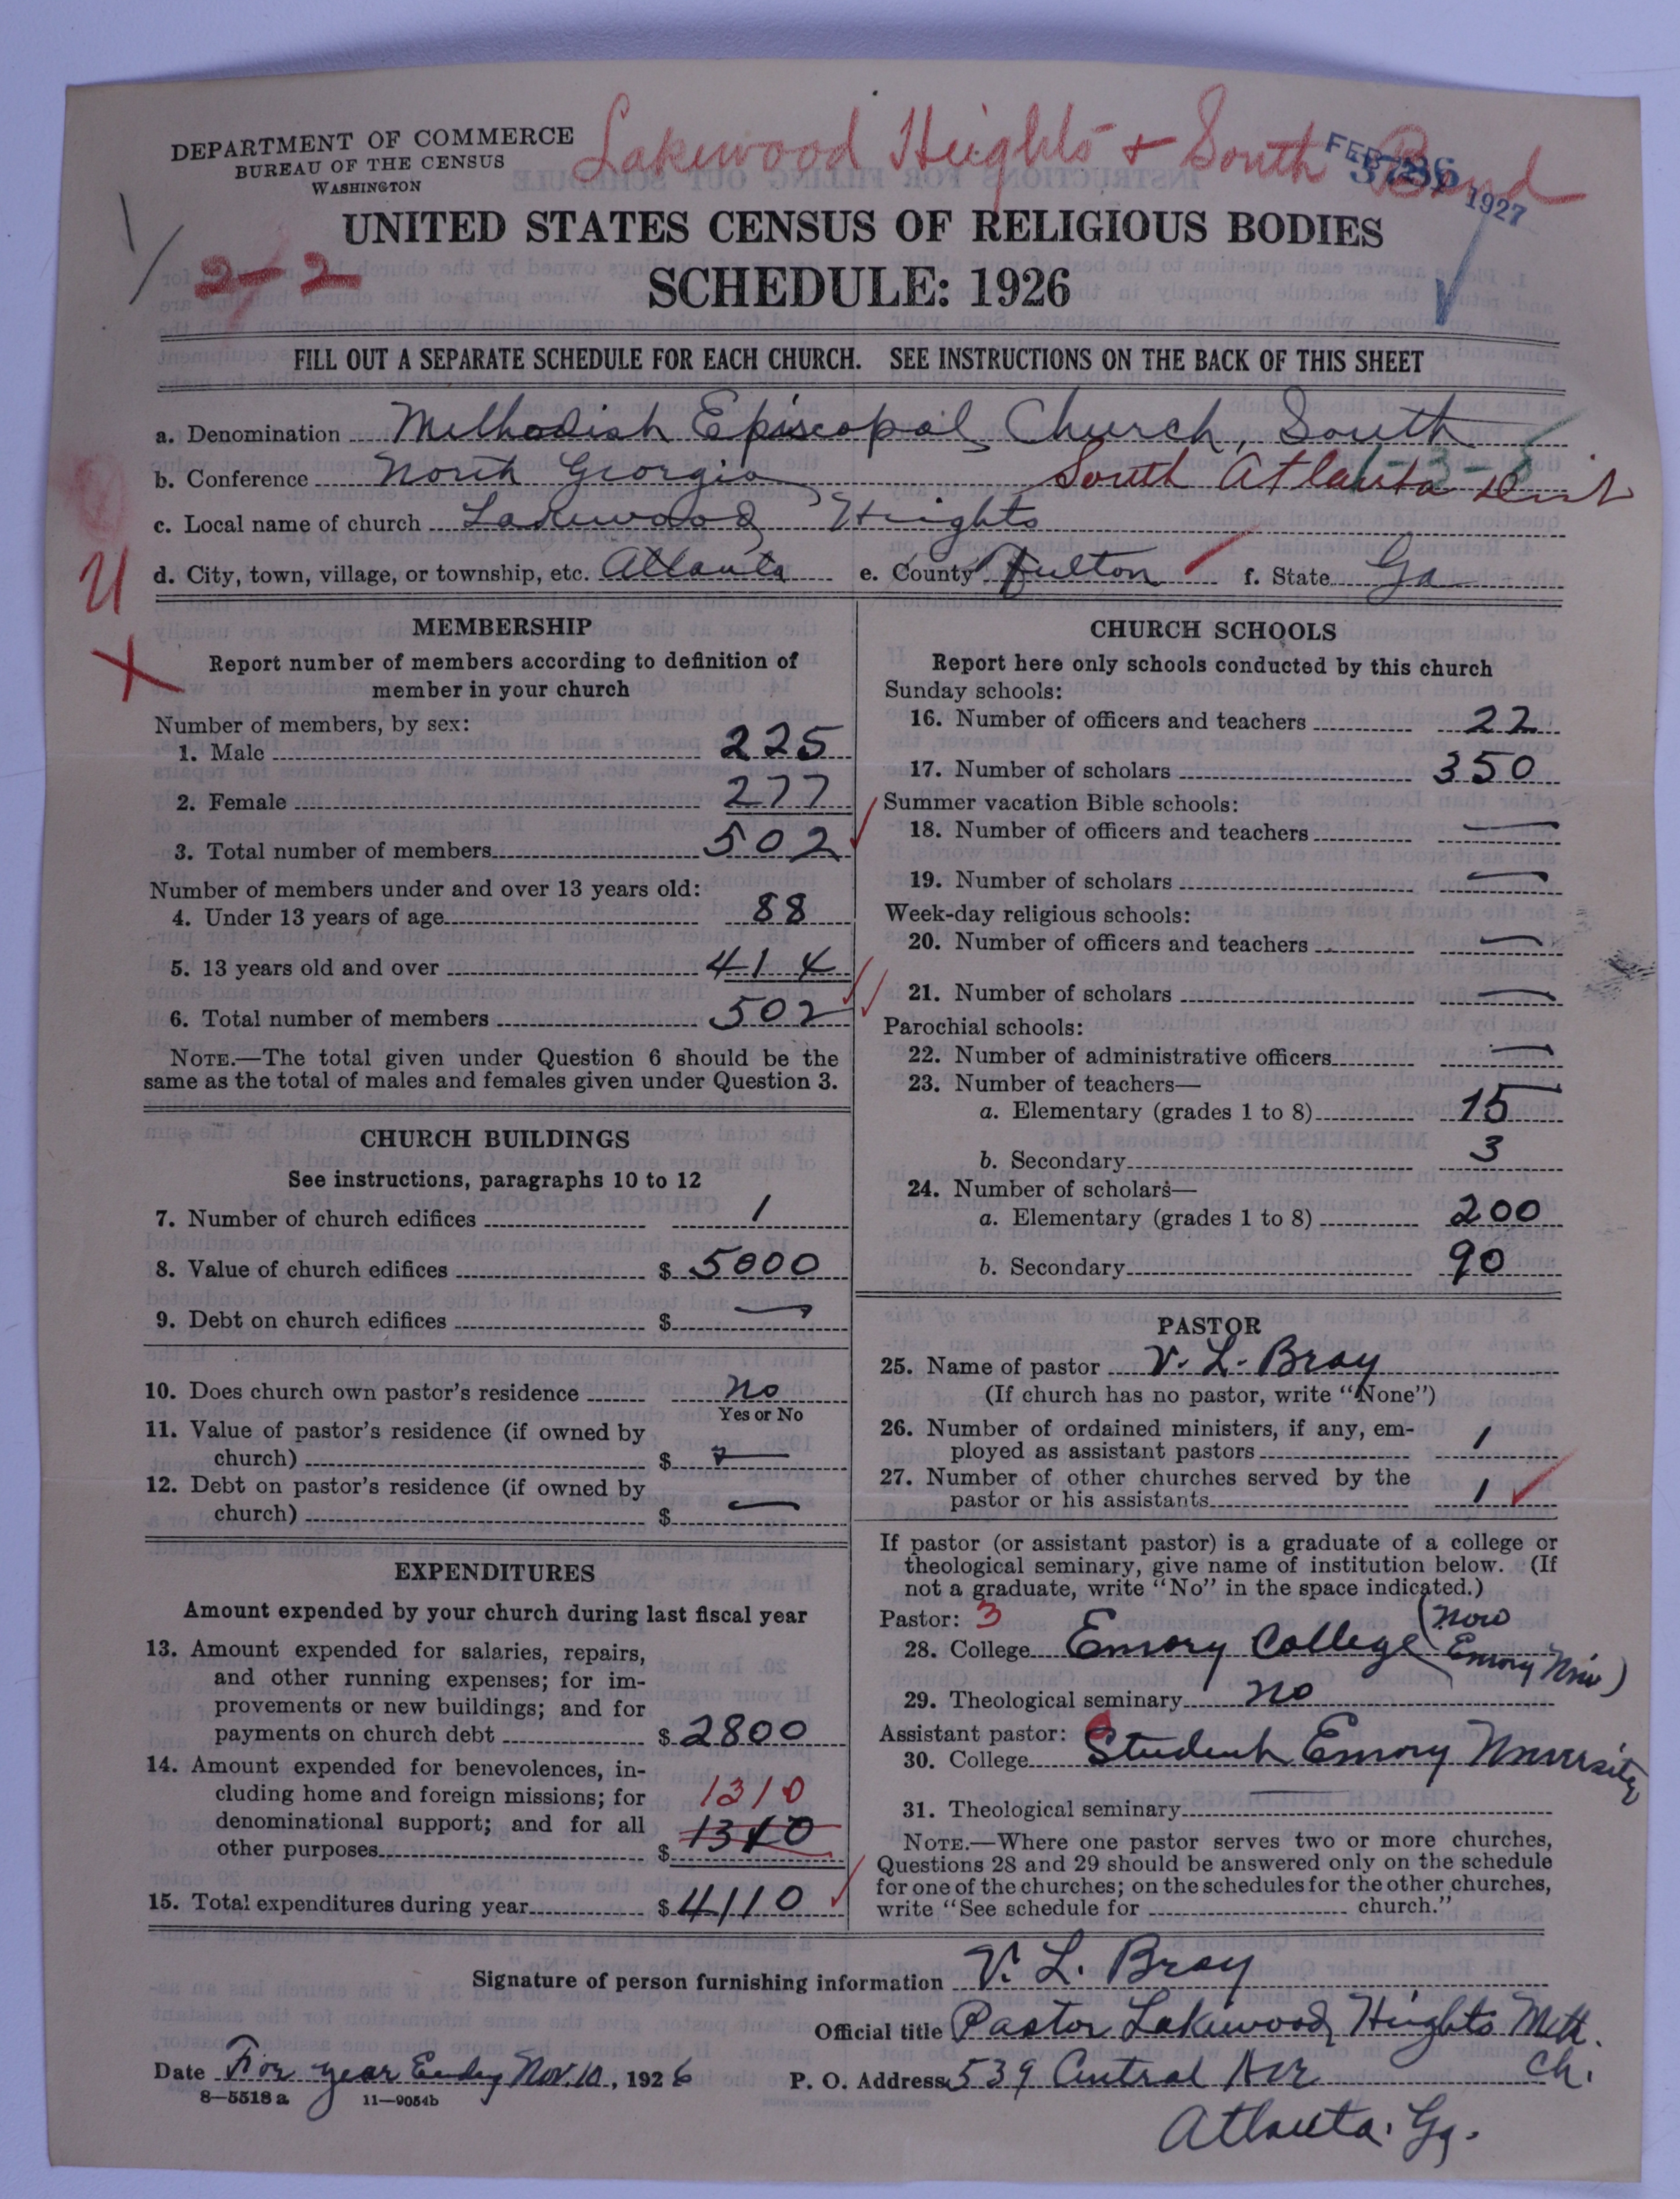 DEPARTMENT OF COMMERCE
BUREAU OF THE CENSUS
WASHINGTON
Lakewood Heights + South Bend
FEB 1927
UNITED STATES CENSUS OF RELIGIOUS BODIES
2-2
SCHEDULE: 1926
FILL OUT A SEPARATE SCHEDULE FOR EACH CHURCH. SEE INSTRUCTIONS ON THE BACK OF THIS SHEET
a. Denomination Methodist Episcopal Church, South
b. Conference North Georgia South Atlanta Dist
1-3-3
c. Local name of church Lakewood Heights
U
d. City, town, village, or township, etc. Atlanta e. County Fulton f. State Ga
X
MEMBERSHIP
Report number of members according to definition of
member in your church
Number of members, by sex:
1. Male 225
2. Female 277
3. Total number of members 502
Number of members under and over 13 years old:
4. Under 13 years of age 88
5. 13 years old and over 414
6. Total number of members 502
NOTE.—The total given under Question 6 should be the
same as the total of males and females given under Question 3.
CHURCH BUILDINGS
See instructions, paragraphs 10 to 12
7. Number of church edifices 1
8. Value of church edifices $ 5000
9. Debt on church edifices $ —
10. Does church own pastor's residence No
Yes or No
11. Value of pastor's residence (if owned by
church) $ —
12. Debt on pastor's residence (if owned by
church) $ —
EXPENDITURES
Amount expended by your church during last fiscal year
13. Amount expended for salaries, repairs,
and other running expenses; for im-
provements or new buildings; and for
payments on church debt $ 2800
14. Amount expended for benevolences, in-
cluding home and foreign missions; for 1310
denominational support; and for all
other purposes $ 1340
15. Total expenditures during year $ 4110
CHURCH SCHOOLS
Report here only schools conducted by this church
Sunday schools:
16. Number of officers and teachers 22
17. Number of scholars 350
Summer vacation Bible schools:
18. Number of officers and teachers —
19. Number of scholars —
Week-day religious schools:
20. Number of officers and teachers —
21. Number of scholars —
Parochial schools:
22. Number of administrative officers —
23. Number of teachers—
a. Elementary (grades 1 to 8) 15
b. Secondary 3
24. Number of scholars—
a. Elementary (grades 1 to 8) 200
b. Secondary 90
PASTOR
25. Name of pastor V. L. Bray
(If church has no pastor, write "None")
26. Number of ordained ministers, if any, em-
ployed as assistant pastors 1
27. Number of other churches served by the
pastor or his assistants 1
If pastor (or assistant pastor) is a graduate of a college or
theological seminary, give name of institution below. (If
not a graduate, write "No" in the space indicated.)
Pastor: 3
28. College Emory College (now Emory Univ)
29. Theological seminary No
Assistant pastor:
30. College Student Emory University
31. Theological seminary
NOTE.—Where one pastor serves two or more churches,
Questions 28 and 29 should be answered only on the schedule
for one of the churches; on the schedules for the other churches,
write "See schedule for church."
Signature of person furnishing information V. L. Bray
Official title Pastor Lakewood Heights Meth. Ch.
Date For year Ending Nov. 10, 1926 P. O. Address 539 Central Ave
8—5518 a 11—9054b
Atlanta, Ga.